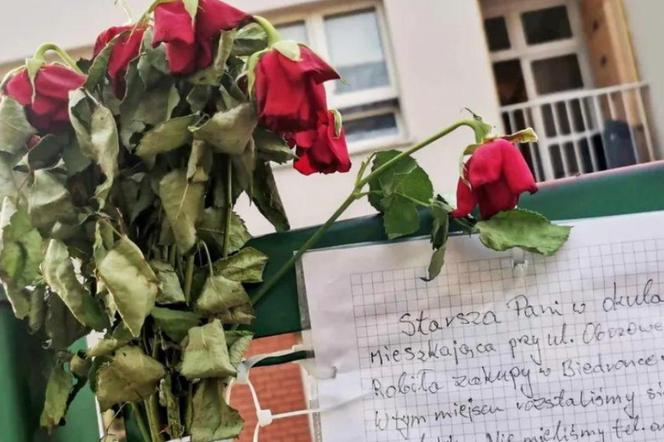 Starsza Pani w okula
Mieszkająca przy ul. Obozowe
Robiła zakupy w Biedronce
W tym miejscu rozstaliśmy się
Nie mieliśmy tel.